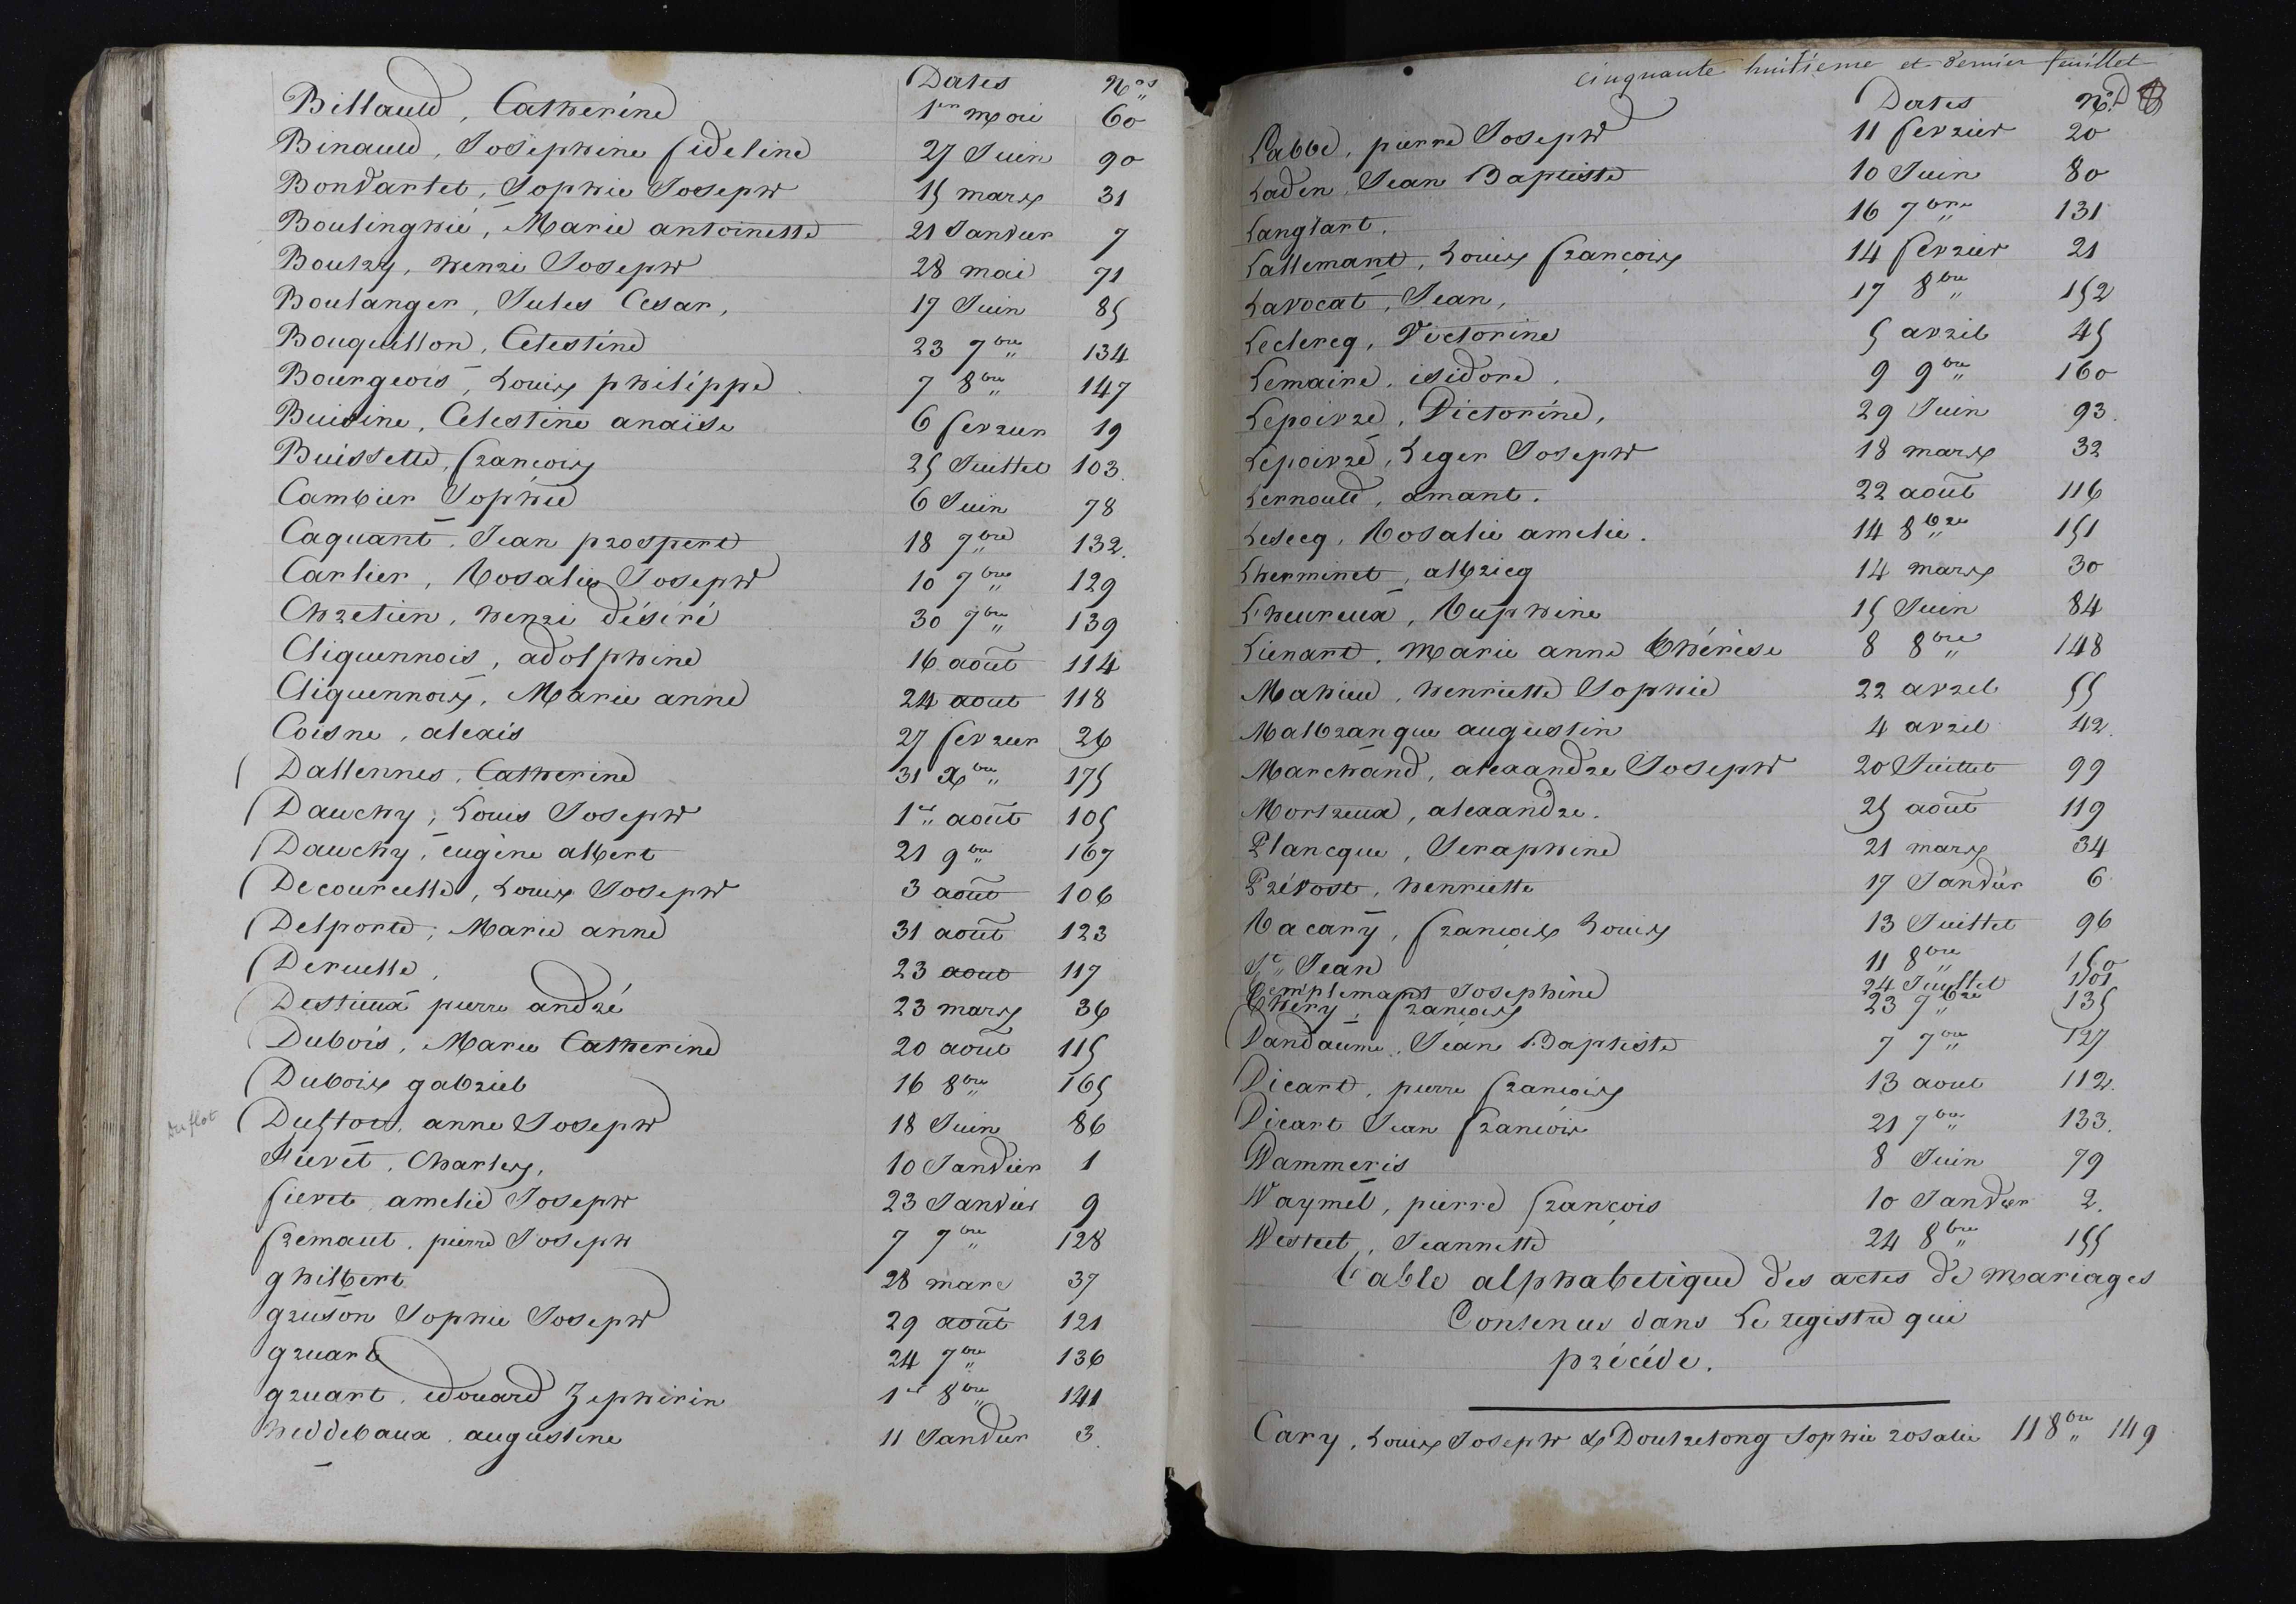 Dates Nos
Billauld, Catherine 1er mai 60
Binauld, Josephine fideline 27 Juin 90
Bondarlet, Sophie Joseph 15 mars 31
Boulinghié, Marie antoinette 21 Janvier 7
Boutry, henri Joseph 28 mai 71
Boulanger, Jules Cesar, 17 Juin 85
Bouquillon, Celestine 23 7bre 134
Bourgeois, Louis philippe 7 8bre 147
Buisine, Celestine anaïse 6 fevrier 19
Buissette, françois 25 Juillet 103.
Cambier Sophie 6 Juin 78
Caquant, Jean prospert 18 7bre 132.
Carlier, Rosalie Joseph 10 7bre 129
Chretien, henri désiré 30 7bre 139
Cliquennois, adolphine 16 août 114
Cliquennois, Marie anne 24 aout 118
Coisne, alexis 27 fevrier 26
Dallennes, Catherine 31 Xbre 175
Dauchy, Louis Joseph 1er août 105
Dauchy, eugène albert 21 9bre 167
Decourcelle, Louis Joseph 3 août 106
Delporte, Marie anne 31 août 123
Deruelle, 23 aout 117
Destieux pierre andré 23 mars 36
Dubois, Marie Catherine 20 août 115
Dubois gabriel 16 8bre 165
Duflot Duflot, anne Joseph 18 Juin 86
fievet, Charles, 10 Janvier 1
fievet, amelie Joseph 23 Janvier 9
fremaut, pierre Joseph 7 7bre 128
ghilbert 28 mars 37
gruson Sophie Joseph 29 août 121
gruart 24 7bre 136
gruart, edouard Zephirin 1er 8bre 141
heddebaux, augustine 11 Janvier 3.
cinquante huitième et dernier feuillet
Dates Nos
Labbe, pierre Joseph 11 fevrier 20
Laden, Jean Baptiste 10 Juin 80
Langlart, 16 7bre 131
Lallemant, Louis françois 14 fevrier 21
Lavocat, Jean, 17 8bre 152
Leclercq, Victorine 5 avril 45
Lemaire, isidore, 9 9bre 160
Lepoivre, Victorine, 29 Juin 93.
Lepoivre, Leger Joseph 18 mars 32
Lernould, amant. 22 août 116
Lesecq, Rosalie amelie. 14 8bre 151
Lherminet, albricq 14 mars 30
L'heureux, Ruphine 15 Juin 84
Lienart, Marie anne Thérèse 8 8bre 148
Mahieu, henriette Sophie 22 avril 55
Malbranque augustin 4 avril 42.
Marchand, alexandre Joseph 20 Juillet 99
Mortreux, alexandre. 25 août 119
Plancque, Seraphine 21 mars 34
Prévost, henriette 17 Janvier 6
Racary, françois Louis 13 Juillet 96
St Jean 11 8bre 150
Templemant Josephine 24 Juillet 101
Thery, françois 23 7bre 135
Vandaume, Jean Baptiste 7 7bre 127
Vicart, pierre françois 13 aout 112.
Vicart Jean françois 21 7bre 133.
Wammeris 8 Juin 79
Waymel, pierre françois 10 Janvier 2.
Westeel, Jeannette 24 8bre 155
Table alphabetique des actes de mariages
Contenus dans le registre qui
précéde.
Cary, Louis Joseph & Doutrelong Sophie rosalie 11 8bre 149